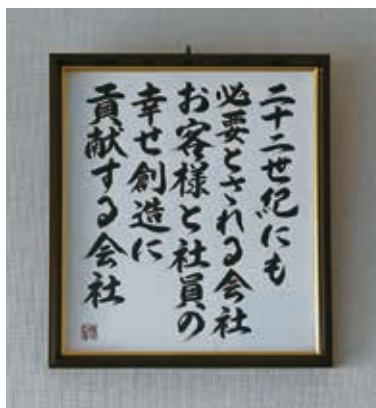 二十二世紀にも
必要とされる会社
お客様と社員の
幸せ創造に
貢献する会社